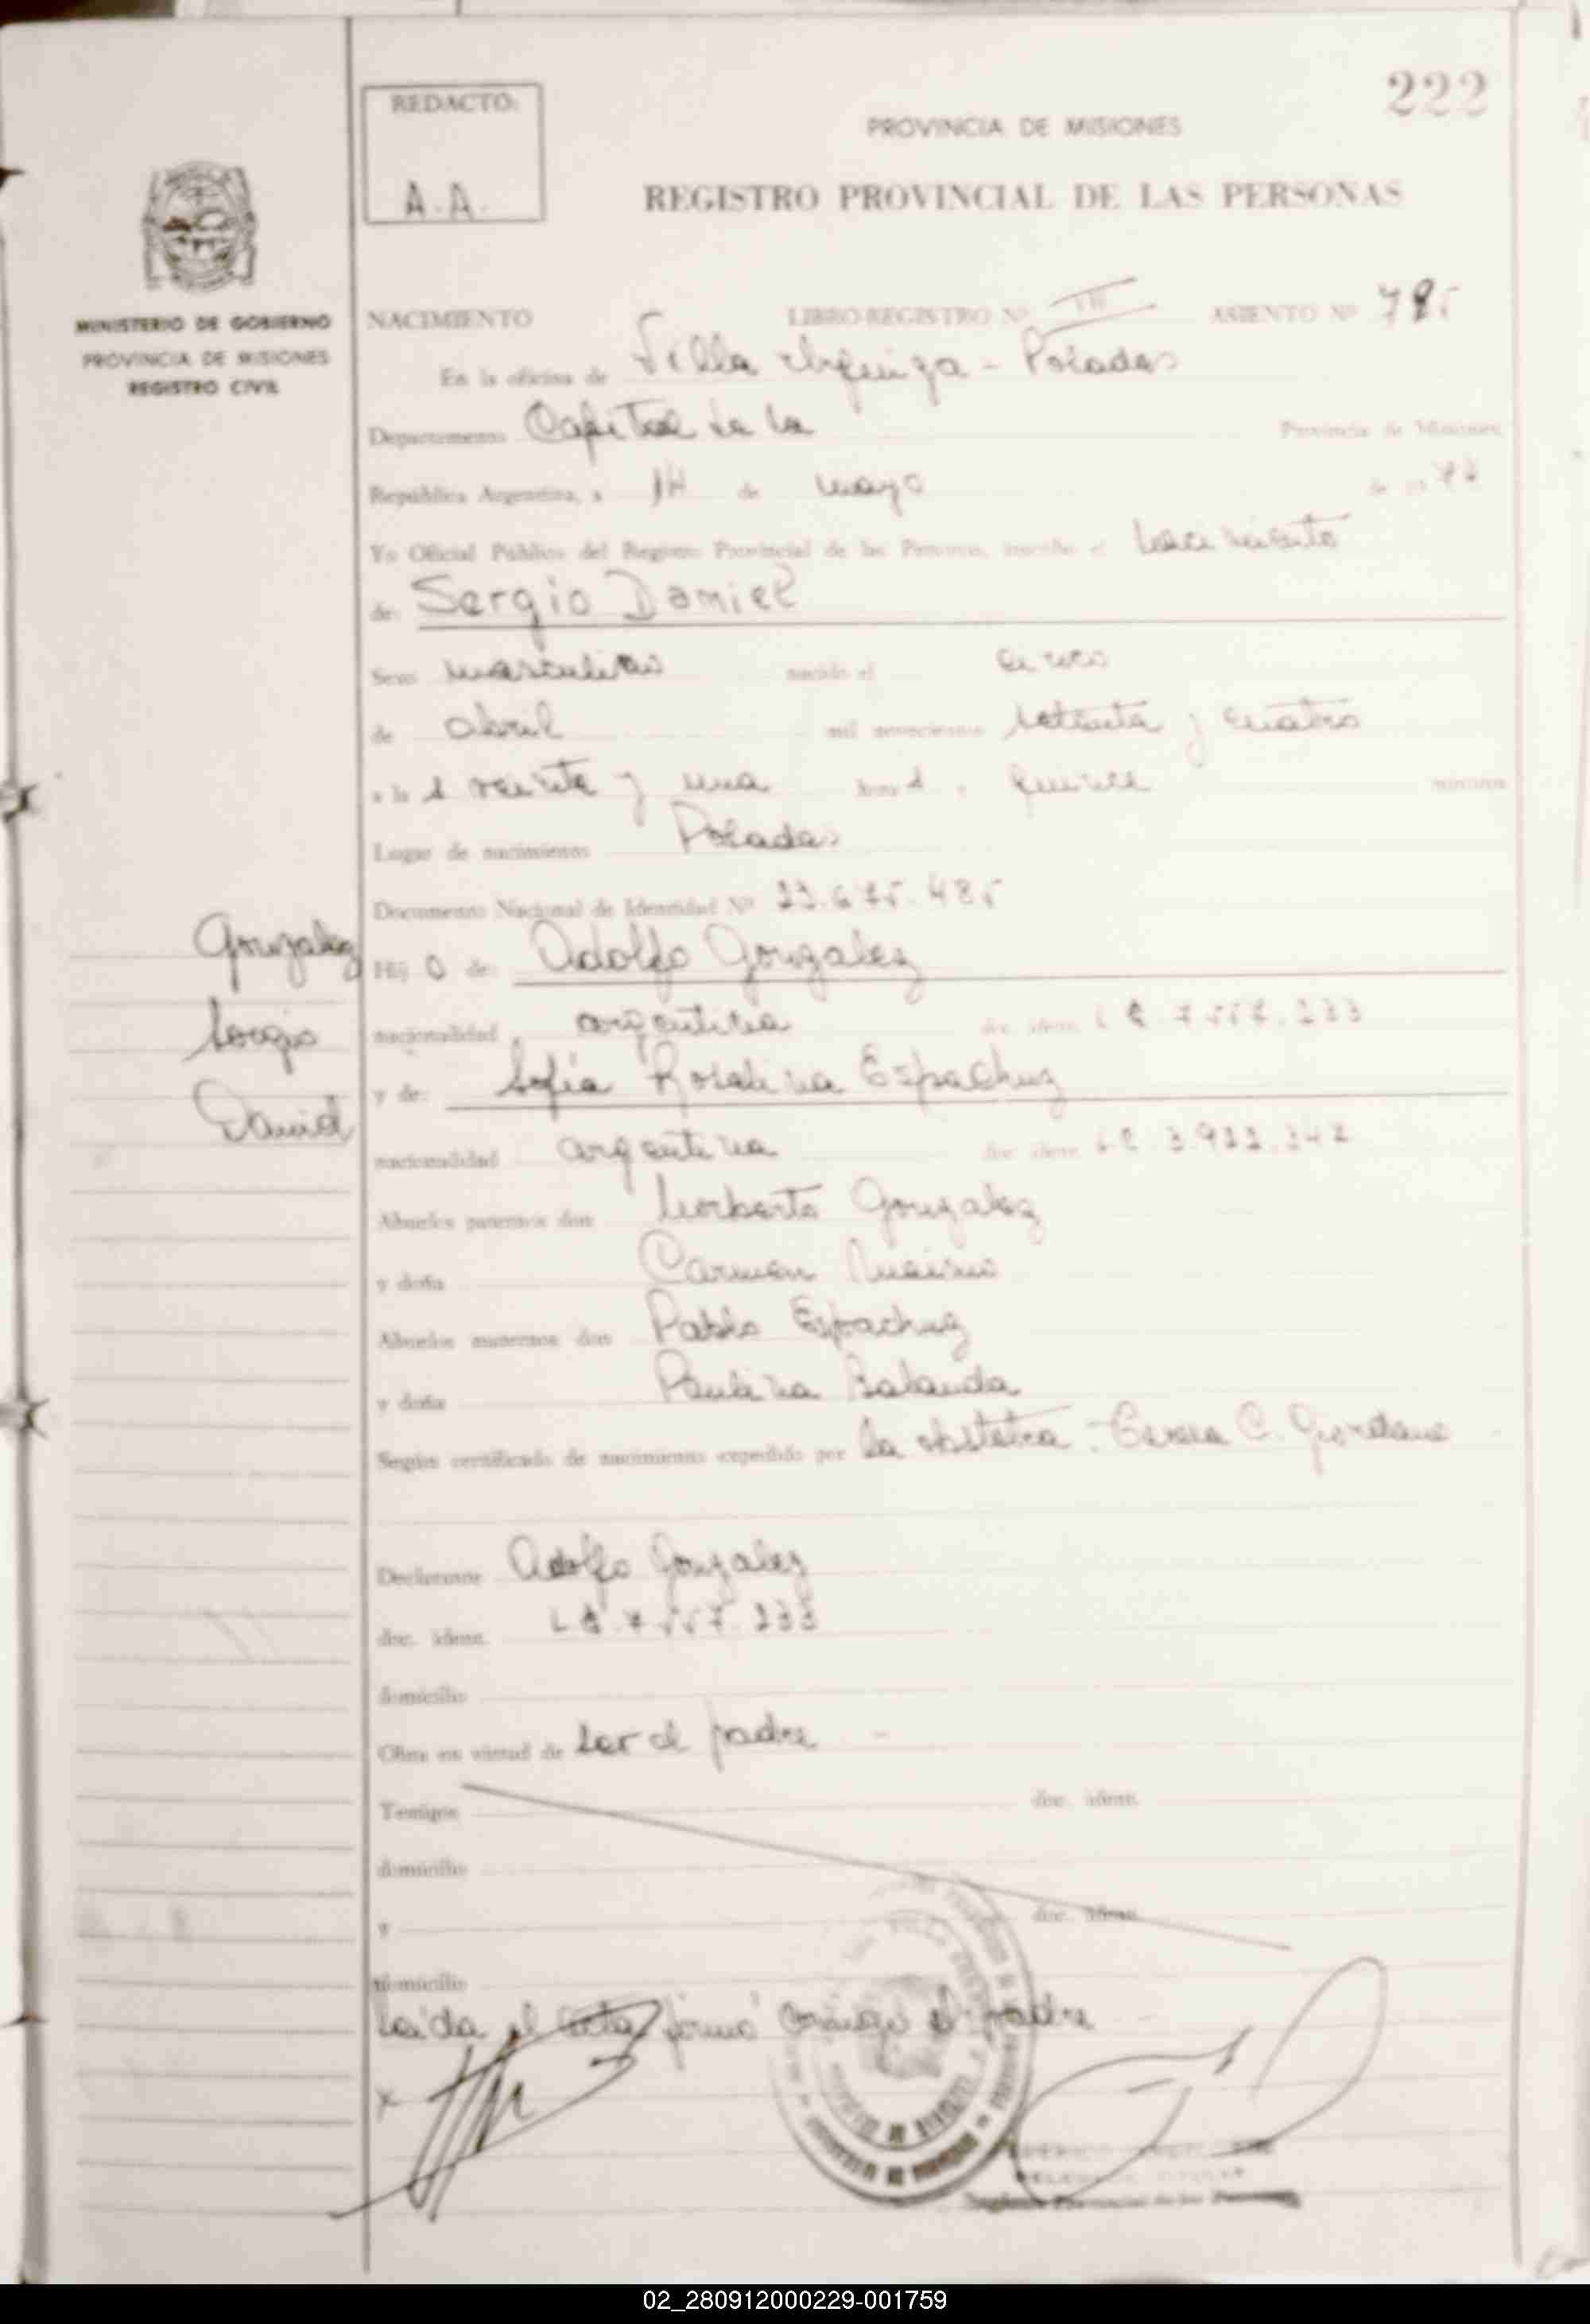 222
REDACTO:
A.A.
PROVINCIA DE MISIONES
REGISTRO PROVINCIAL DE LAS PERSONAS
MINISTERIO DE GOBIERNO
PROVINCIA DE MISIONES
REGISTRO CIVIL
NACIMIENTO LIBRO-REGISTRO Nº III ASIENTO Nº 785
En la oficina de Villa Urquiza - Posadas
Departamento Capital de la Provincia de Misiones,
República Argentina, a 14 de mayo de 19 74
Yo Oficial Público del Registro Provincial de las Personas, inscribo el nacimiento
de: Sergio Daniel
Sexo masculino nacido el cinco
de abril mil novecientos setenta y cuatro
a la s veinte y una hora s y quince minutos
Lugar de nacimiento Posadas
Documento Nacional de Identidad Nº 23.675.485
Gonzalez
Sergio
Daniel
Hij o de: Adolfo Gonzalez
nacionalidad argentina doc. ident. 7.557.233
y de: Sofia Rosalina Espachuz
nacionalidad argentina doc. ident. L.C. 3.922.342
Abuelos paternos don Norberto Gonzalez
y doña Carmen
Abuelos maternos don Pablo Espachuz
y doña Paulina Balanda
Según certificado de nacimiento expedido por la obstetra - C. Giordano
Declarante Adolfo Gonzalez
doc. ident. 7.557.233
domicilio
Obra en virtud de ser el padre -
Testigos doc. ident.
domicilio
y doc. ident.
domicilio
Leída el acta, firmó conmigo el padre
x
Registro Provincial de las Personas
02_280912000229-001759